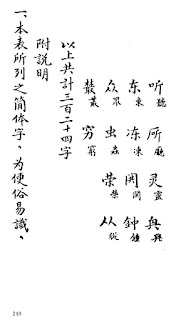 听聽 㕔廳 灵靈 𠔻興
东東 冻凍 冈岡 钟鐘
众眾 虫蟲 荣榮 从從
叢叢 穷窮
以上共計三百二十四字
附說明
一、本表所列之简体字，为便俗易識，
240